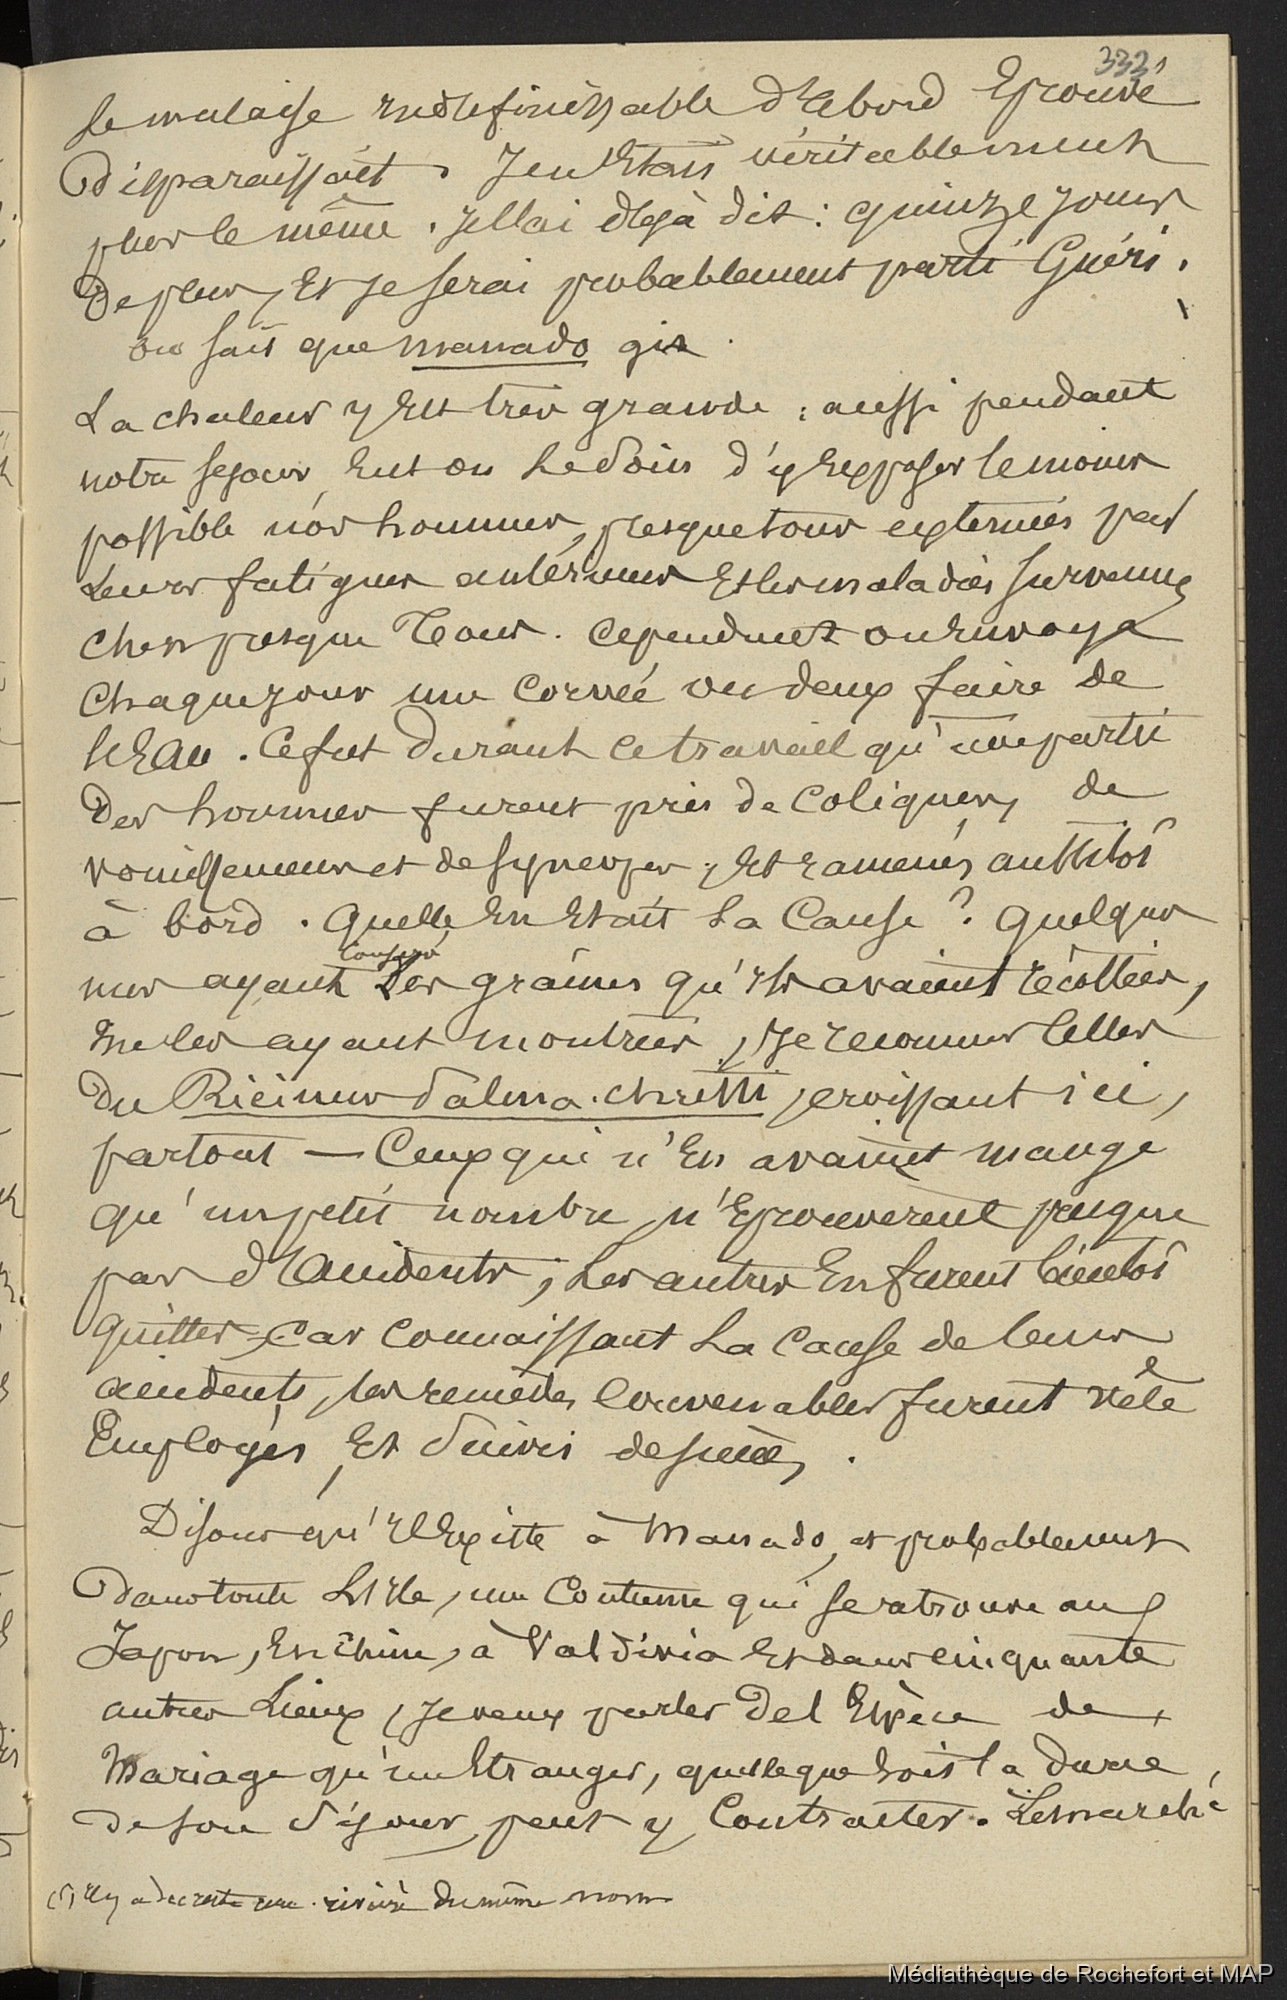 333
Le malaise indéfinissable d'abord Eprouvé
Disparaissait. J'en Etais véritablement
plus le même. Je l'ai déjà dit: quinze jours
De plus, Et je serai probablement parti Guéri.
on sait que manado gis
La chaleur y Est très grande; aussi pendant
notre sejour, Eut on Le Soin d'y Exposer le moins
possible nos hommes, presque tous exténués par
Leurs fatigues antérieures Et les maladies survenues
chez presque Tous. cependant on Envoya
chaque jour une corvée ou deux faire de
l'Eau. Ce fut Durant ce travail qu'une partie
Des hommes furent pris de Coliques, de
vomissements et de syncopes, Et ramenés aussitôt
à bord. Quelle En Etait La Cause? Quelques
conservé
uns ayant Des graines qu'ils avaient récoltées,
me les ayant montrées, Je reconnus celles
Du Ricinus Palma. christi, croissant ici,
partout — Ceux qui n'En avaient mangé
qu'un petit nombre, n'Eprouverent presque
pas d'Accidents, Les autres En furent bientôt
quittes, Car Connaissant La Cause de leurs
accidents, les remèdes Convenables furent
Employés, Et Suivis de succès.
Disons qu'Il Existe à Manado, et probablement
Dans toute L'Ile, une Coutume qui se retrouve au
Japon, En Chine, à Valdivia Et dans cinquante
autres Lieux, Je veux parler De l'Espèce de
Mariage qu'un Etranger, quelle que soit la Durée
De son Séjour, peut y Contracter. Le marché
(1) Il y a du reste une rivière Du même nom
Médiathèque de Rochefort et MAP